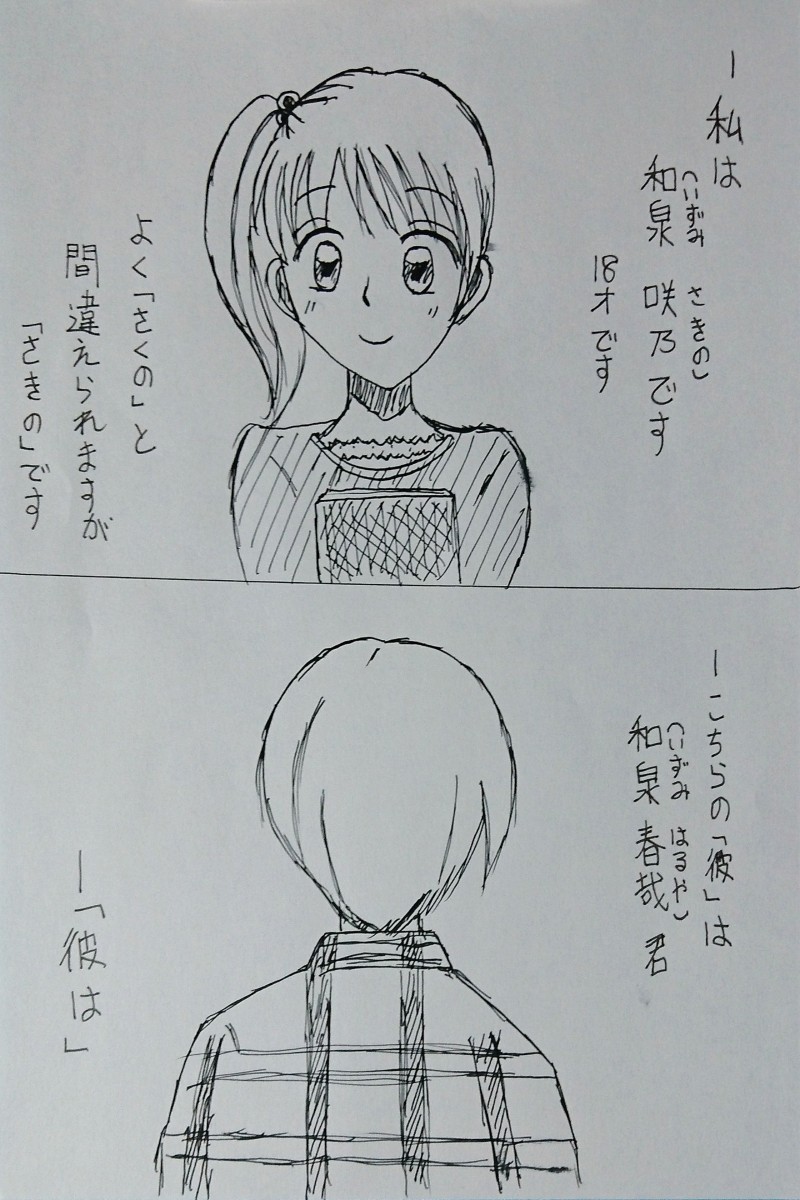 ー私は
和泉 咲乃です
(いずみ さきの)
18才です
よく「さくの」と
間違えられますが
「さきの」です
ーこちらの「彼」は
和泉 春哉 君
(いずみ はるや)
ー「彼は」